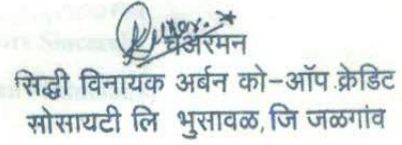 चेअरमन
सिद्धी विनायक अर्बन को-ऑप.क्रेडिट
सोसायटी लि भुसावळ, जि जळगांव